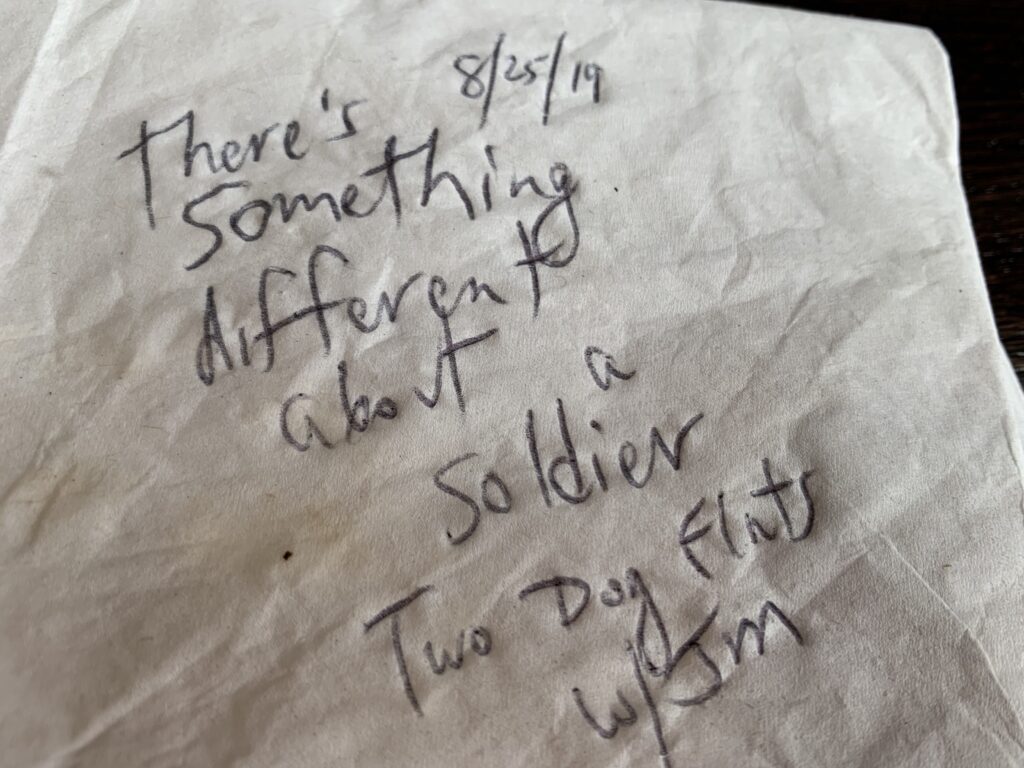 8/25/19
There's
Something
different
about a
soldier
Two Dog Flats
w/JM